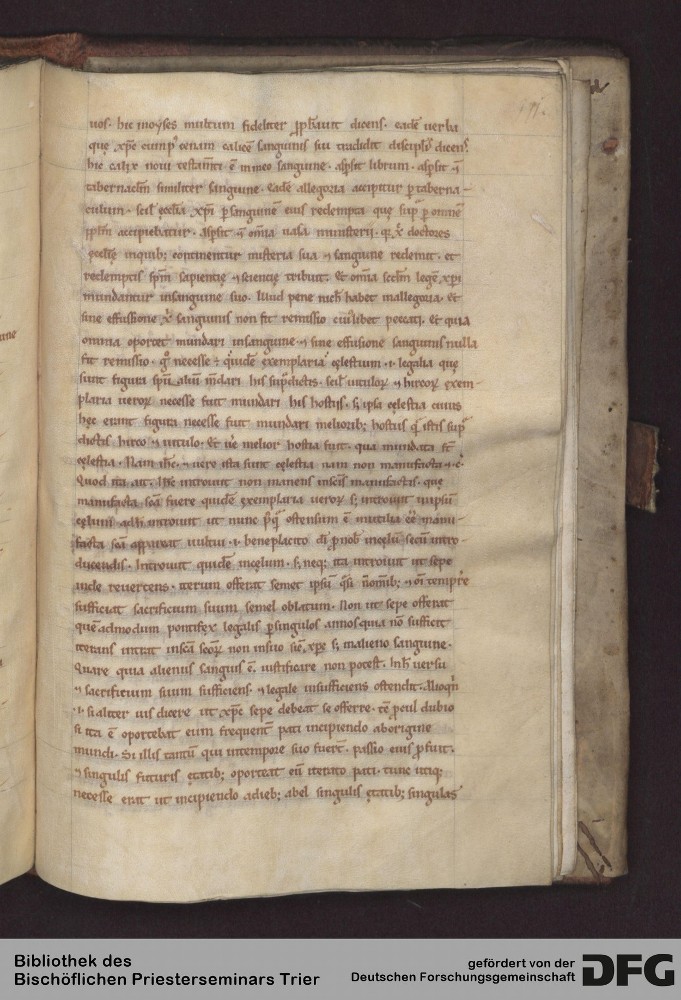 uos. hic moyses multum fideliter ꝓph̄auit dicens. eadē uerba
quę xp̄c cum p cenam calicē sanguinis sui tradidit discipl̄is dicens
hic calix noui testam̄ti ē in meo sanguine. aspsit librum. aspsit ⁊
tabernac̄lm similiter sanguine. Eadē allegoria accipitur ꝑ taberna-
culum. scil ęcclīa xp̄i ꝑ sanguinē eius redempta quę sup ꝑ omnē
ꝓplm accipiebatur. Aspsit ⁊ om̄ia uasa ministerij. doctores
ęcclīę inquib; continentur misteria sua ⁊ sanguine redemit. et
redemptis sp̄m sapientię ⁊ scientię tribuit. Et om̄ia scđm legē xp̄i
mundantur insanguine suo. Illud pene nich habet inallegoria. Et
sine effussione sanguinis non fit remissio cuiꝰlibet peccati. Et quia
omnia oportet mundari insanguine. ⁊ sine effusione sanguinis nulla
fit remissio. gͦ necesse ÷ quidē exemplaria cęlestium .i. legalia quę
sunt figura mūdari his sup̄dictis. scil uitulorꝝ ⁊ hircorꝝ exem-
plaria uerorꝝ necesse fuit mundari his hostijs. s; ipsa cęlestia cuius
hęc erant figura necesse fuit mundari meliorib; hostiis q̄ istis sup
dictis hirco ⁊ uitulo. Et uē melior hostia fuit. qua mundata st̄
cęlestia. Nam uero ista sunt cęlestia nam non manufacta
Quod ita ait. introiuit non manens inscīs manufactis. quę
manufacta scā fuere quidē exemplaria uerorꝝ s; introiuit inipsū
cęlum introiuit ut nunc ostensum ē inutilia eē manu-
facta scā appareat uultui .i. beneplacito dī ꝑ nob incęlū secū intro-
ducendis. Introiuit quidē incęlum. s; neq; ita introiuit ut sepe
inde reuertens. iterum offerat semet ipsū q̄si ⁊ oī tempr̄e
sufficiat sacrificium suum semel oblatum. Non ut sepe offerat
quē admodum pontifex legalis ꝑ singulos annos quia nō sufficit
iterans intrat inscā scōrꝝ non insuo sic̄ xp̄c s; inalieno sanguine.
Quare quia alienus sanguis ē. iustificare non potest. In h uersu
⁊ sacrificium suum sufficiens. ⁊ legale insufficiens ostendit. Alioqn̄
.i. si aliter uis dicere ut xp̄c sepe debeat se offerre. tē ꝓcul dubio
si ita ē oportebat eum frequent̄ pati incipiendo aborigine
mundi. Si illis tantū qui intempore suo fuer̄t. passio eius ꝓfuit.
⁊ singulis futuris ętatib; oporteat eū iterato pati. tunc utiq;
necesse erat ut incipiendo adieb; abel singulis ętatib; singulas
Bibliothek des
Bischöflichen Priesterseminars Trier
gefördert von der
Deutschen Forschungsgemeinschaft
DFG